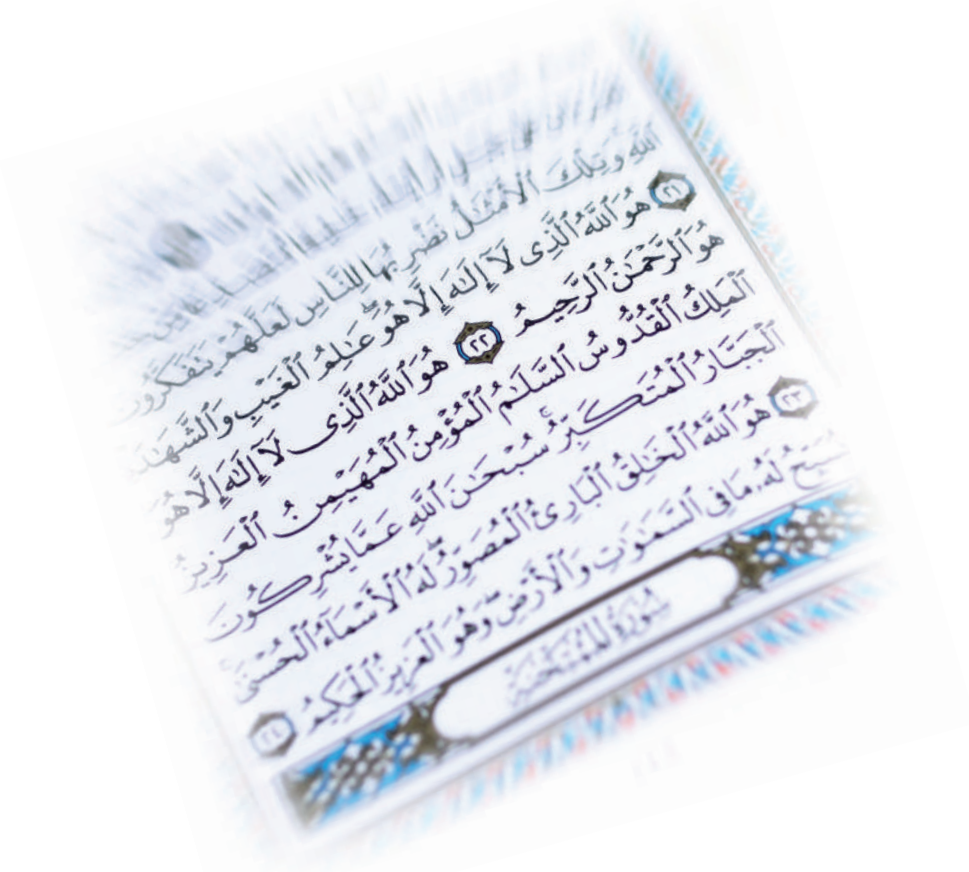 ٱللَّهِ وَتِلْكَ ٱلْأَمْثَٰلُ نَضْرِبُهَا لِلنَّاسِ لَعَلَّهُمْ يَتَفَكَّرُونَ
٢١ هُوَ ٱللَّهُ ٱلَّذِى لَآ إِلَٰهَ إِلَّا هُوَ ۖ عَٰلِمُ ٱلْغَيْبِ وَٱلشَّهَٰدَةِ
هُوَ ٱلرَّحْمَٰنُ ٱلرَّحِيمُ ٢٢ هُوَ ٱللَّهُ ٱلَّذِى لَآ إِلَٰهَ إِلَّا هُوَ
ٱلْمَلِكُ ٱلْقُدُّوسُ ٱلسَّلَٰمُ ٱلْمُؤْمِنُ ٱلْمُهَيْمِنُ ٱلْعَزِيزُ
ٱلْجَبَّارُ ٱلْمُتَكَبِّرُ ۚ سُبْحَٰنَ ٱللَّهِ عَمَّا يُشْرِكُونَ
٢٣ هُوَ ٱللَّهُ ٱلْخَٰلِقُ ٱلْبَارِئُ ٱلْمُصَوِّرُ ۖ لَهُ ٱلْأَسْمَآءُ ٱلْحُسْنَىٰ ۚ
يُسَبِّحُ لَهُۥ مَا فِى ٱلسَّمَٰوَٰتِ وَٱلْأَرْضِ ۖ وَهُوَ ٱلْعَزِيزُ ٱلْحَكِيمُ ٢٤
سُورَةُ الْمُمْتَحَنَةِ